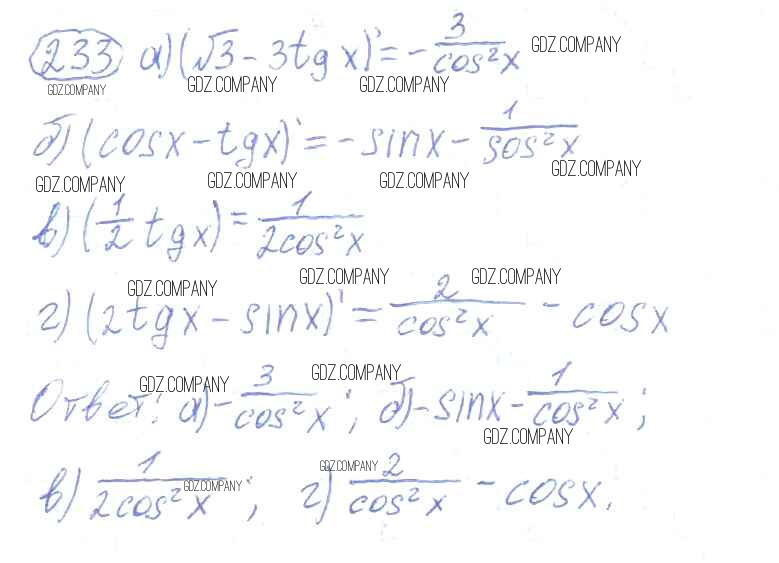 233 а) (√3 - 3tg x)' = - 3/cos²x GDZ.COMPANY
GDZ.COMPANY GDZ.COMPANY GDZ.COMPANY
б) (cosx - tgx)' = - sinx - 1/sos²x
GDZ.COMPANY GDZ.COMPANY GDZ.COMPANY GDZ.COMPANY
в) (1/2 tgx) = 1/2cos²x
GDZ.COMPANY GDZ.COMPANY GDZ.COMPANY
г) (2tgx - sinx)' = 2/cos²x - cosx
GDZ.COMPANY GDZ.COMPANY
Ответ: а) - 3/cos²x; б) - sinx - 1/cos²x;
GDZ.COMPANY
GDZ.COMPANY
в) 1/2cos²x; г) 2/cos²x - cosx.
GDZ.COMPANY